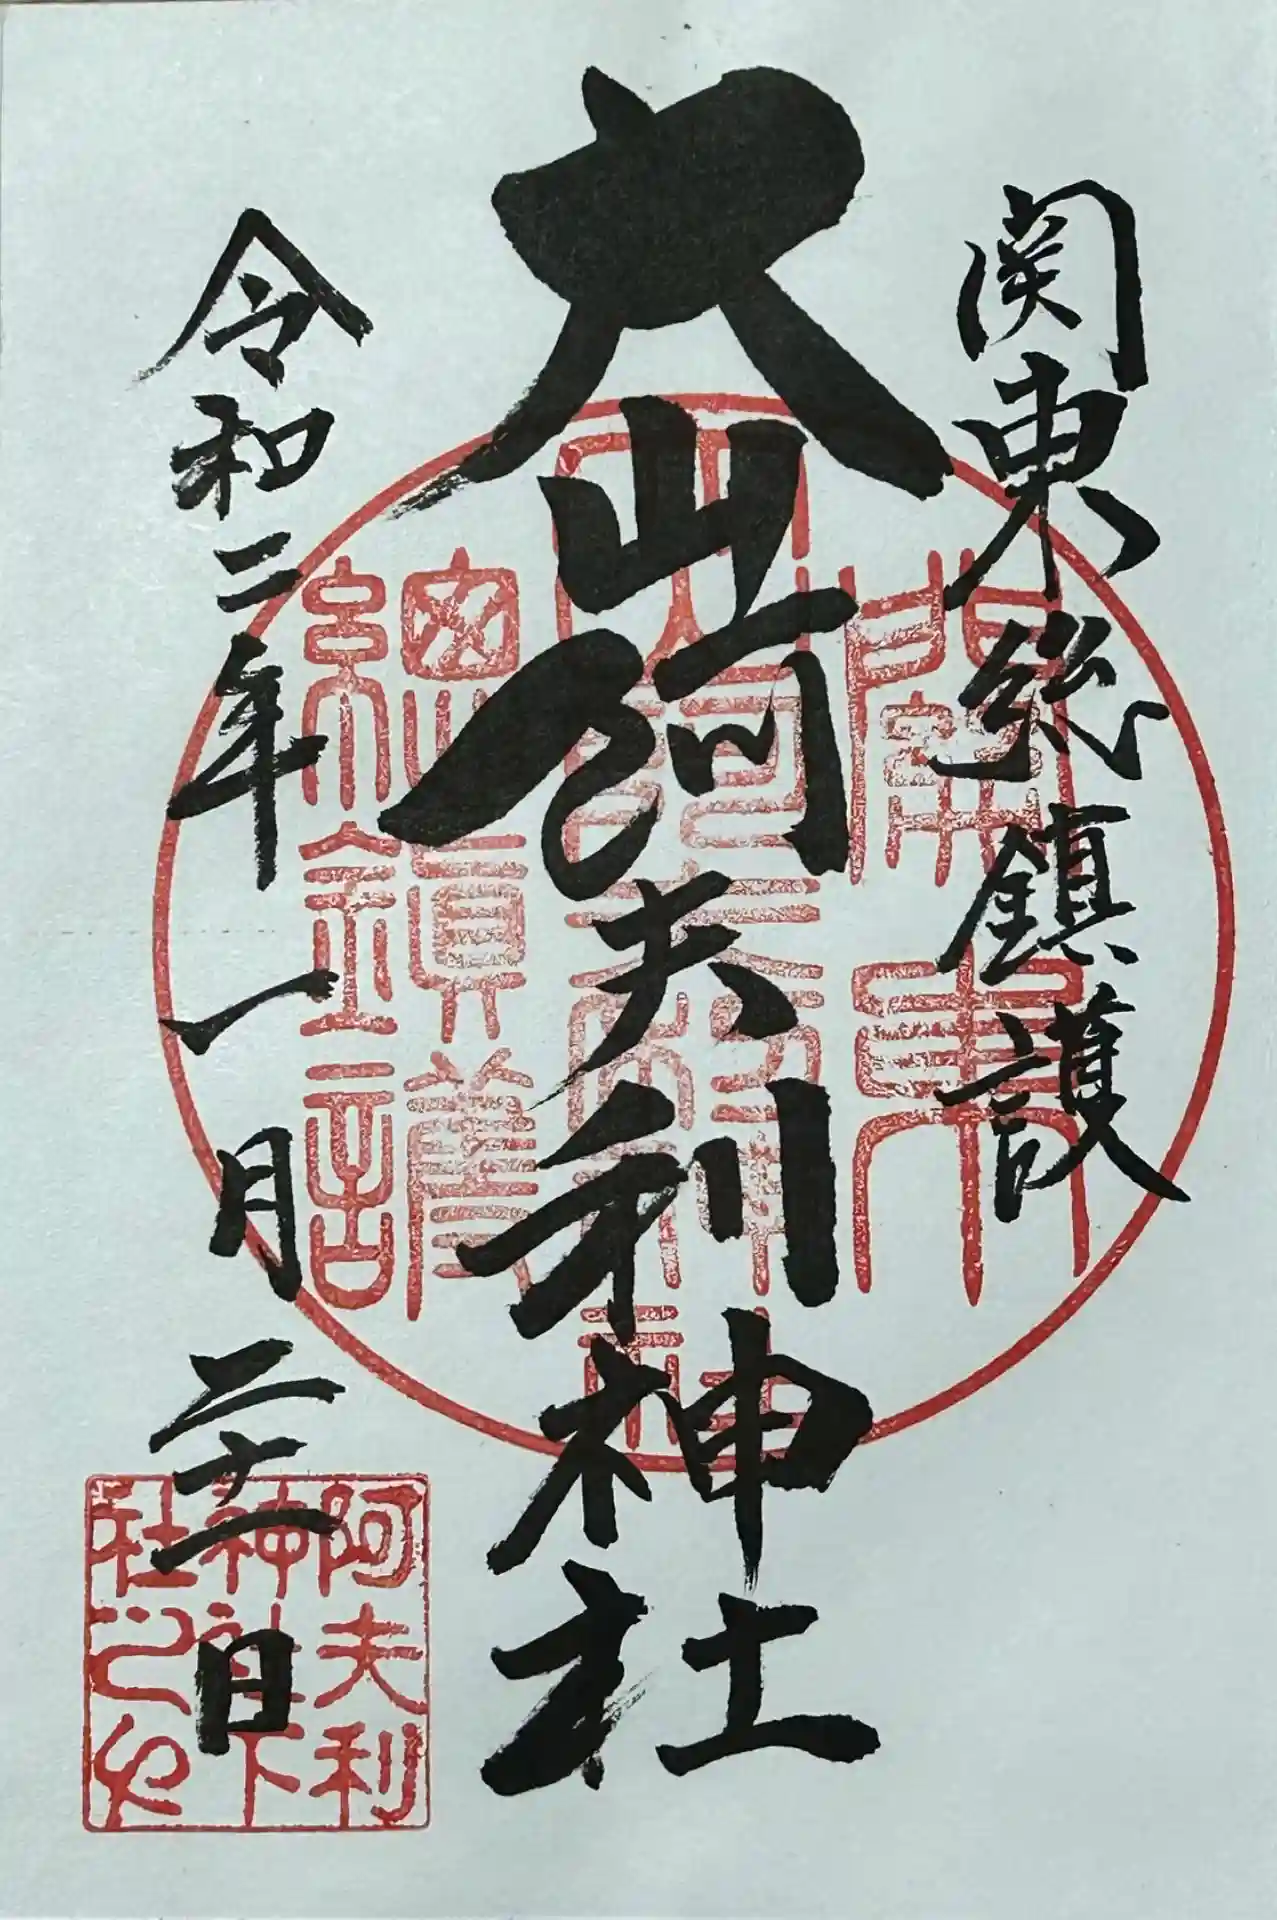 関東総鎮護
大山阿夫利神社
令和二年一月二十一日
関東
大山阿夫利神社
總鎮護
阿夫利
神社下
社之印